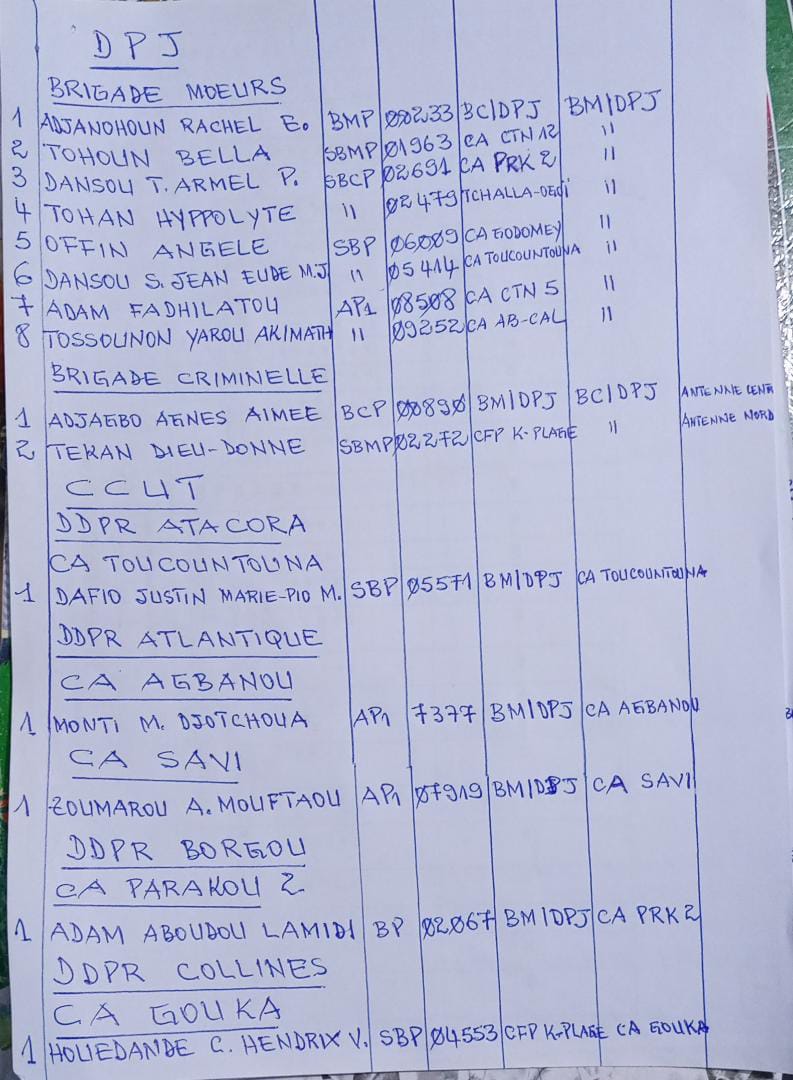 DPJ
BRIGADE MOEURS
1 ADJANOHOUN RACHEL E. BMP 00233 BC/DPJ BM/DPJ
2 TOHOUN BELLA SBMP 01963 CA CTN 12 "
3 DANSOU T. ARMEL P. SBCP 02691 CA PRK 2 "
4 TOHAN HYPPOLYTE " 02479 TCHALLA-OEDI "
5 OFFIN ANGELE SBP 06009 CA GODOMEY "
6 DANSOU S. JEAN EUDE M.J " 05414 CA TOUCOUNTOUNA "
7 ADAM FADHILATOU AP1 08508 CA CTN 5 "
8 TOSSOUNON YAROU AKIMATH " 09252 CA AB-CAL "
BRIGADE CRIMINELLE
1 ADJAGBO AGNES AIMEE BCP 00890 BM/DPJ BC/DPJ ANTENNE CENTR
2 TEKAN DIEU-DONNE SBMP 02272 CFP K-PLAGE " ANTENNE NORD
CCUT
DDPR ATACORA
CA TOUCOUNTOUNA
1 DAFIO JUSTIN MARIE-PIO M. SBP 05571 BM/DPJ CA TOUCOUNTOUNA
DDPR ATLANTIQUE
CA AGBANOU
1 MONTI M. DJOTCHOUA AP1 7377 BM/DPJ CA AGBANOU
CA SAVI
1 ZOUMAROU A. MOUFTAOU AP1 07919 BM/DPJ CA SAVI
DDPR BORGOU
CA PARAKOU 2
1 ADAM ABOUDOU LAMIDI BP 02067 BM/DPJ CA PRK 2
DDPR COLLINES
CA GOUKA
1 HOUEDANDE C. HENDRIX V. SBP 04553 CFP K-PLAGE CA GOUKA